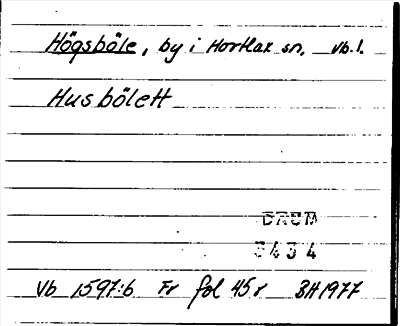 Högsböle, by i Hortlax sn, Vb. l.
Husbölett
DAUM
3434
Vb 1597:6 Fr fol 45r BH 1977